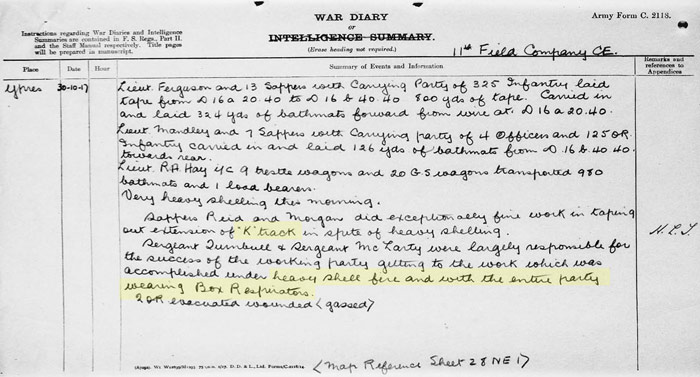 WAR DIARY
OR
INTELLIGENCE SUMMARY.
(Erase heading not required.)
Army Form C. 2118.
Instructions regarding War Diaries and Intelligence
Summaries are contained in F. S. Regs., Part II.
and the Staff Manual respectively. Title pages
will be prepared in manuscript.
11th Field Company CE.
Place
Date
Hour
Summary of Events and Information
Remarks and
references to
Appendices
Ypres
30-10-17
Lieut. Ferguson and 13 Sappers with Carrying Party of 325 Infantry laid
tape from D 16 a 20.40 to D 16 b 40.40 800 yds of tape. Carried in
and laid 324 yds of bathmats forward from wire at D 16 a 20.40.
Lieut. Mandley and 7 Sappers with Carrying party of 4 Officers and 125 OR.
Infantry carried in and laid 126 yds of bathmats from D.16.b 40.40.
towards rear.
Lieut. R.A. Hay I/C 9 trestle wagons and 20 G.S wagons transported 980
bathmats and 1 load bearers.
Very heavy shelling this morning.
Sappers Reid and Morgan did exceptionally fine work in taping
out extension of "K" track in spite of heavy shelling.
Sergeant Turnbull & Sergeant McLarty were largely responsible for
the success of the working party getting to the work which was
accomplished under heavy shell fire and with the entire party
wearing Box Respirators.
2 OR evacuated wounded (gassed)
(Map Reference Sheet 28 NE 1)
D. D. & L., Ltd.